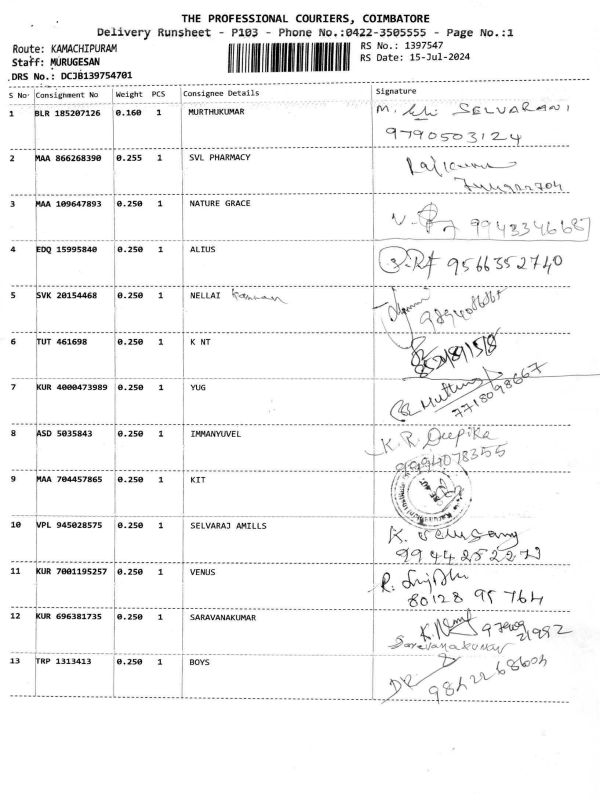 THE PROFESSIONAL COURIERS, COIMBATORE
Delivery Runsheet - P103 - Phone No.:0422-3505555 - Page No.:1
Route: KAMACHIPURAM RS No.: 1397547
Staff: MURUGESAN RS Date: 15-Jul-2024
DRS No.: DCJB139754701
S No Consignment No Weight PCS Consignee Details Signature
1 BLR 185207126 0.160 1 MURTHUKUMAR M. SELVARANI
9790503124
2 MAA 866268390 0.255 1 SVL PHARMACY
3 MAA 109647893 0.250 1 NATURE GRACE
9943346687
4 EDQ 15995840 0.250 1 ALIUS 9566352740
5 SVK 20154468 0.250 1 NELLAI Kannan
6 TUT 461698 0.250 1 K NT
7 KUR 4000473989 0.250 1 YUG
7718098667
8 ASD 5035843 0.250 1 IMMANYUVEL K. R. Deepika
9994078355
9 MAA 704457865 0.250 1 KIT
10 VPL 945028575 0.250 1 SELVARAJ AMILLS K. Velusamy
11 KUR 7001195257 0.250 1 VENUS R.
80128 95764
12 KUR 696381735 0.250 1 SARAVANAKUMAR
Saravanakumar
13 TRP 1313413 0.250 1 BOYS
9842268604